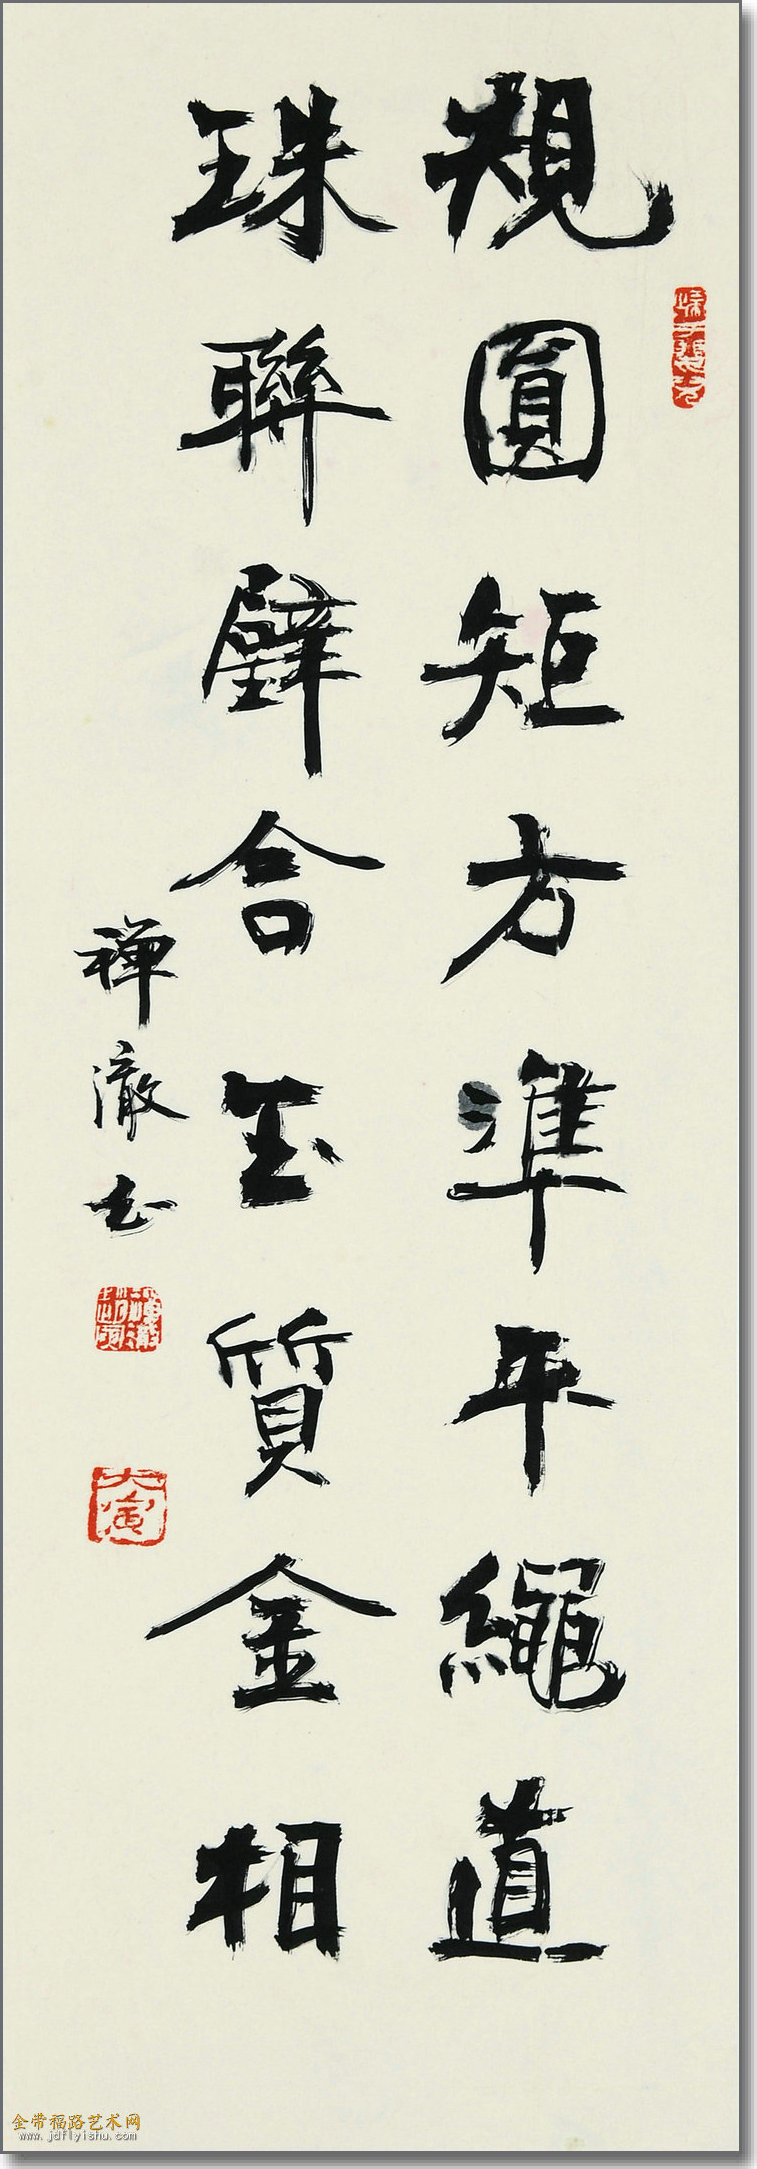 規圓矩方準平繩直
珠聯璧合玉質金相
禪澈书
金带福路艺术网
www.jdflyishu.com